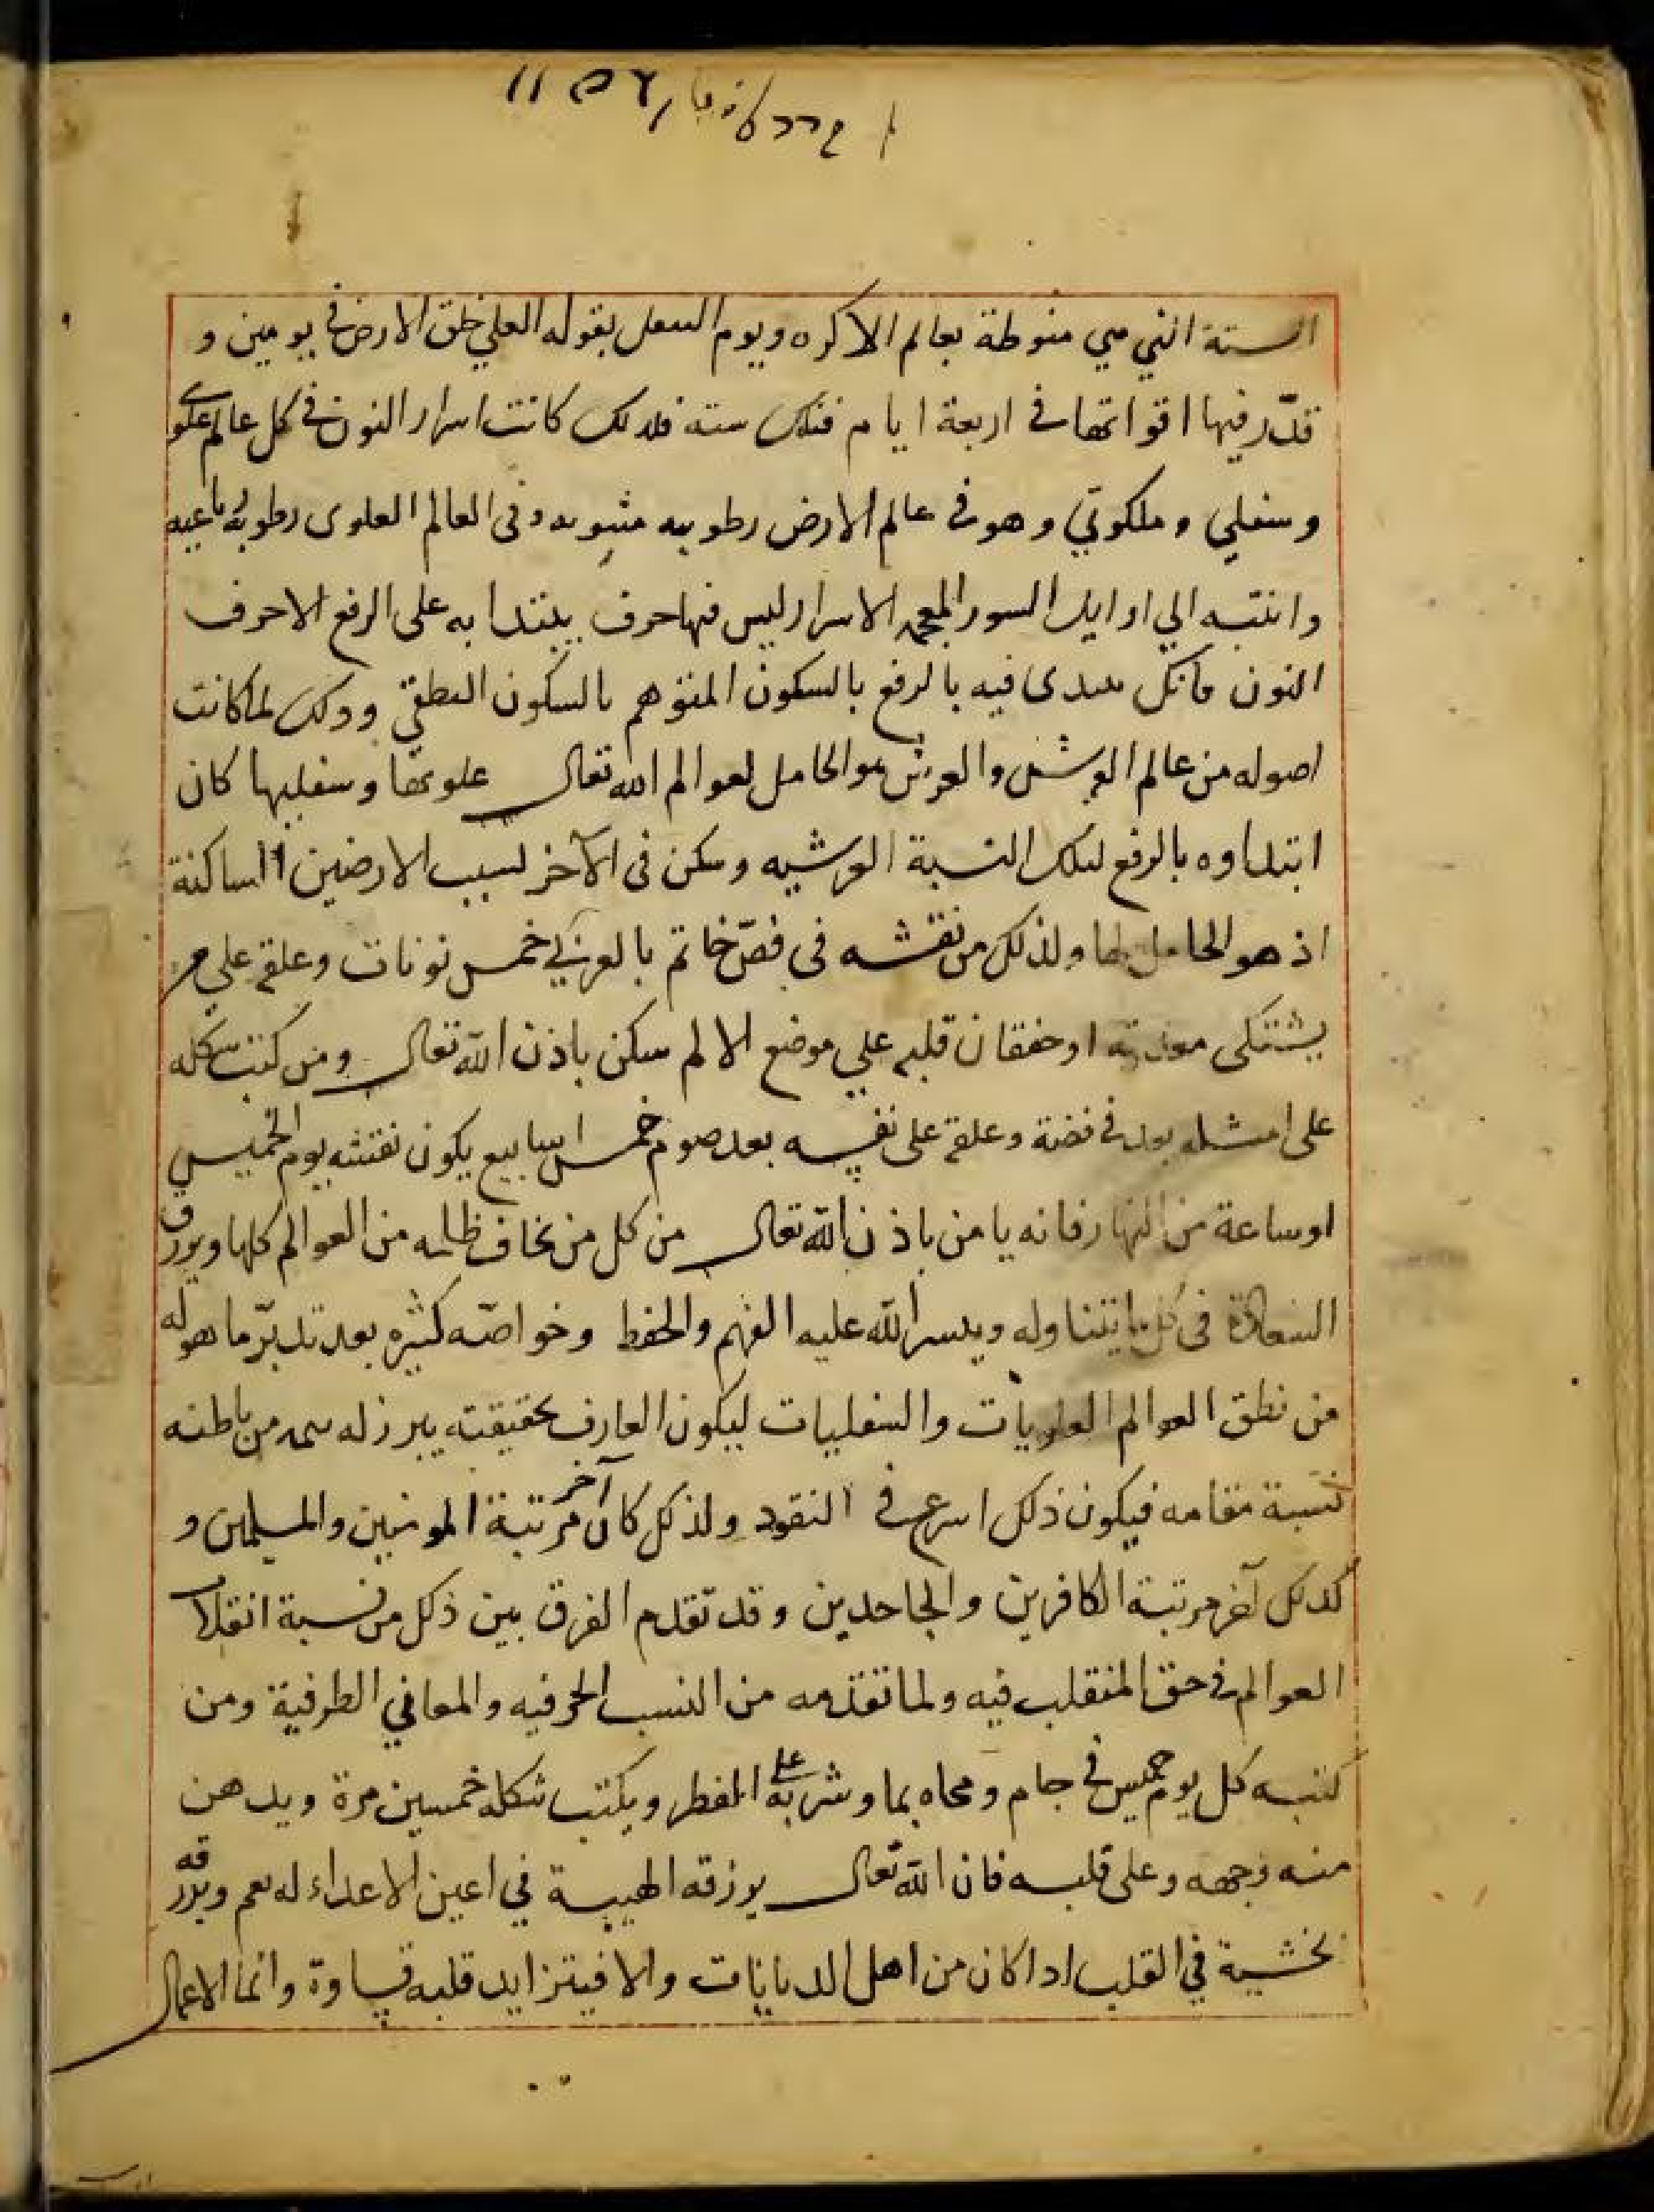 الستة التي هي منوطة بعالم الاكره ويوم السفل بقوله العلي خلق الارض في يومين و
قدّر فيها اقواتها في اربعة ايام فتلك ستة فلذلك كانت اسرار النون في كل عالم علوي
وسفلي وملكوتي وهو في عالم الارض رطوبه وفى العالم العلوى رطوبة
وانتبه الي اوايل السور المعجمه الاسرار ليس فيها حرف يبتدا به على الرفع الا حرف
النون فانك تبتدى فيه بالرفع بالسكون المتوهم بالسكون النطقي وذلك لما كانت
اصوله من عالم العرش والعرش هو الحامل لعوالم الله تعالى علويها وسفليها كان
ابتداوه بالرفع لتلك النسبة العرشيه وسكن فى الآخر لسبب الارضين الساكنة
اذ هو الحامل لها ولذلك من نقشه فى فصّ خاتم بالعربي خمس نونات وعلقه علي من
يشتكى معدته او خفقان قلبه علي موضع الالم سكن باذن الله تعالى ومن كتب شكله
على بعد في فضة وعلقه على نفسه بعد صوم خمس اسابيع يكون نقشه يوم الخميس
او ساعة من النهار فانه يامن باذن الله تعالى من كل من يخاف ظلمه من العوالم كلها ويرزق
السعادة فى كل ما يتناوله وييسر الله عليه الفهم والحفظ وخواصّه كثيره بعد تدبّر ما هو له
من نطق العوالم العلويات والسفليات ليكون العارف بحقيقته يبرز له من باطنه
نسبة مقامه فيكون ذلك اسرع في النفود ولذلك كان آخر مرتبة المومنين والمسلمين و
كذلك آخر مرتبة الكافرين والجاحدين وقد تقدم الفرق بين ذلك من نسبة انقلاب
العوالم في حق المنقلب فيه ولما تقدمه من النسب الحرفيه والمعاني الظرفية ومن
كتبه كل يوم خميس في جام ومحاه بما وشربه على الفطر ويكتب شكله خمسين مرة ويدهن
منه وجهه وعلى قلبه فان الله تعالى يرزقه الهيبة في اعين الاعداء له نعم ويرزقه
خشية في القلب اذا كان من اهل الديانات والا فيتزايد قلبه قساوة وانما الاعمال